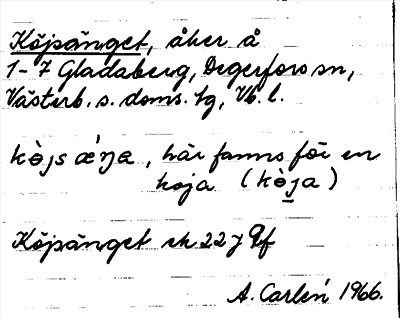 Köjsänget, åker å
1-7 Gladaberg, Degerfors sn,
Västerb. s. doms. hg, Vb. l.
kò̤jsæ´ŋa, här fanns för en
koja (kò̤ja)
Köjsänget ek 22 J 9f
A. Carlén 1966.